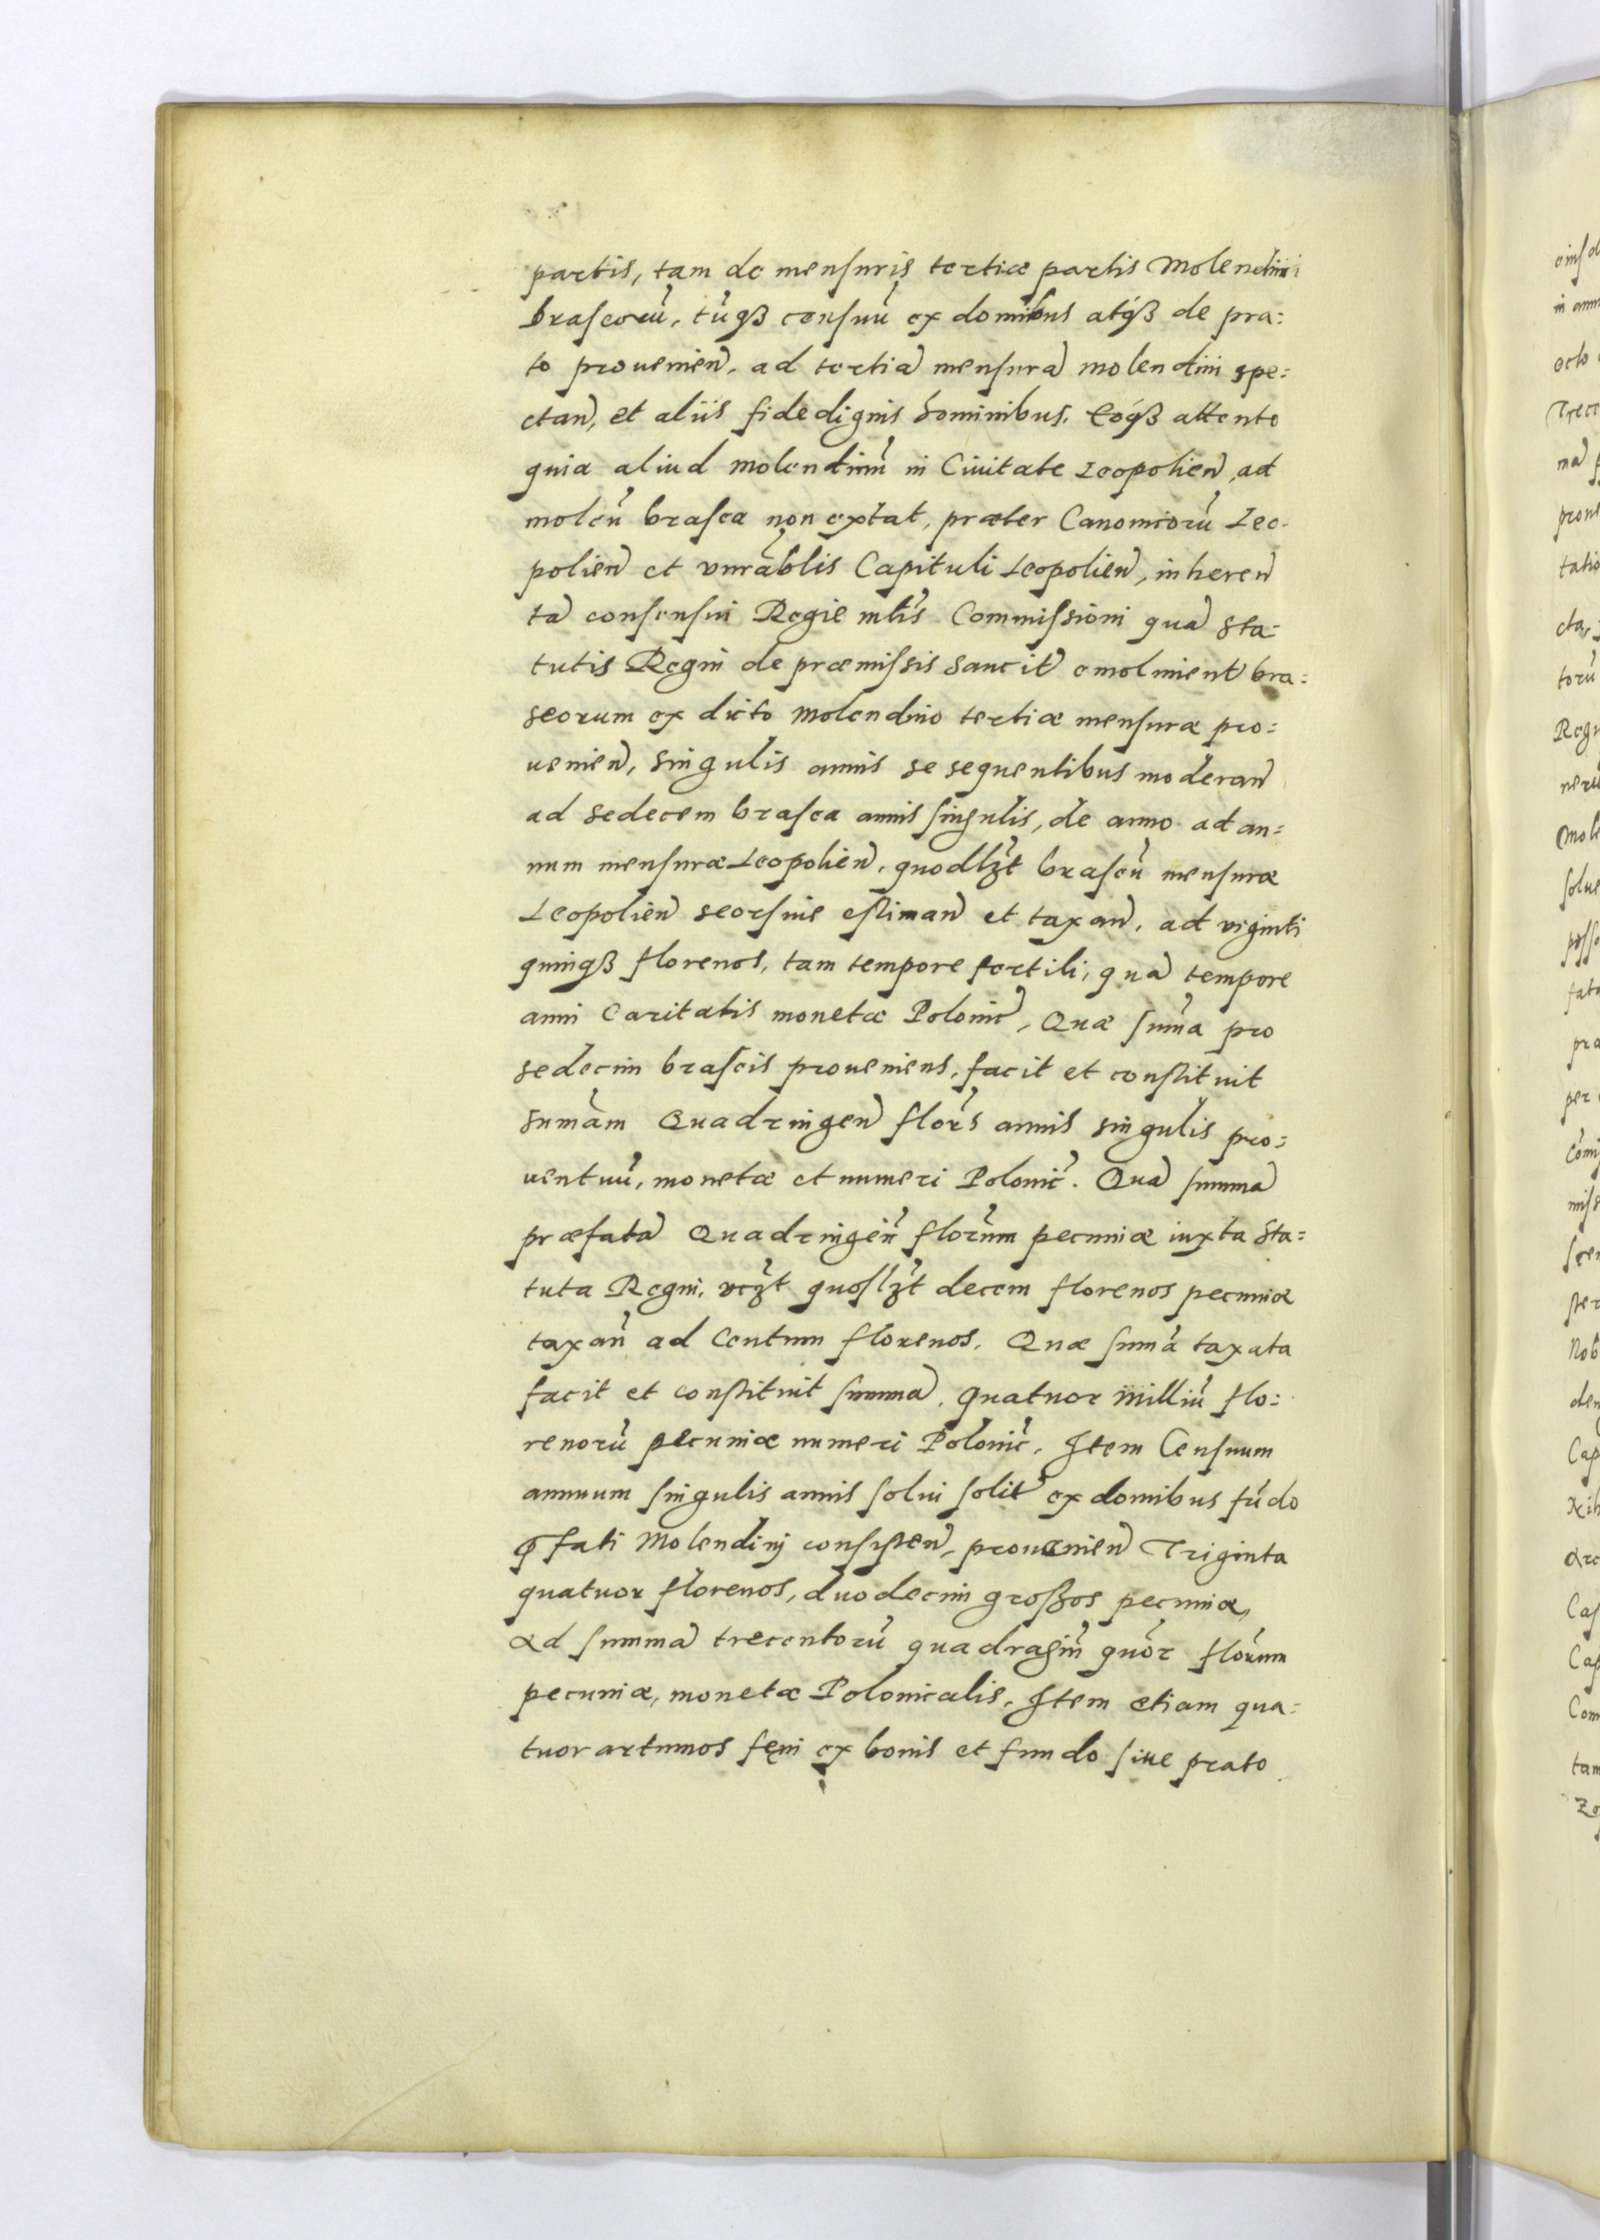 partis, tam de mensuris tertiæ partis Molendini
braseorũ, tũq3 censuũ ex domibus atq3 de pra:
to prouenieñ, ad tertiã mensurã molendini spe:
ctañ, et aliis fide dignis hominibus. Eoq3 attento
quia aliud molendinũ in Ciuitate Leopolieñ, ad
moleñ brasea non extat, præter Canonicorũ Leo-
polieñ et vnrãblis Capituli Leopolieñ, inhereñ
tã consensui Regie mt̃is Commissioni quã Sta:
tutis Regni de præmissis sancit̃ emolument̃ bra:
seorum ex dicto Molendino tertiæ mensuræ pro:
uenieñ, singulis annis se sequentibus moderañ
ad sedecem brasea annis singulis, de anno ad an:
num mensuræ Leopolieñ, quodlz̃t braseũ mensuræ
Leopolieñ seorsiue estimañ et taxañ, ad viginti
quinq3 florenos, tam tempore fertili, quã tempore
anni Caritatis monetæ Polonic̃, Quæ sum̃a pro
sedecim braseis proueniens, facit et constituit
sum̃am Quadringeñ flor̃s annis singulis pro:
uentuũ, monetæ et numeri Polonic̃. Quã summã
præfatã Quadringeñ flor̃um pecuniæ iuxta Sta:
tuta Regni, vcz̃t quoslz̃t decem florenos pecuniæ
taxañ ad Centum florenos. Quæ sum̃a taxata
facit et constituit summã, quatuor Milliũ flo:
renorũ pecuniæ numeri Polonic̃. Item Censuum
annuum singulis annis solui solit̃ ex domibus fũdo
p̃fati Molendinj consisteñ, prouenieñ Triginta
quatuor florenos, duodecim großos pecuniæ,
Ad summã trecentorũ quadragiñ quõr flor̃um
pecuniæ, monetæ Polonicalis. Item etiam qua:
tuor artumos fęni ex bonis et fundo siue prato